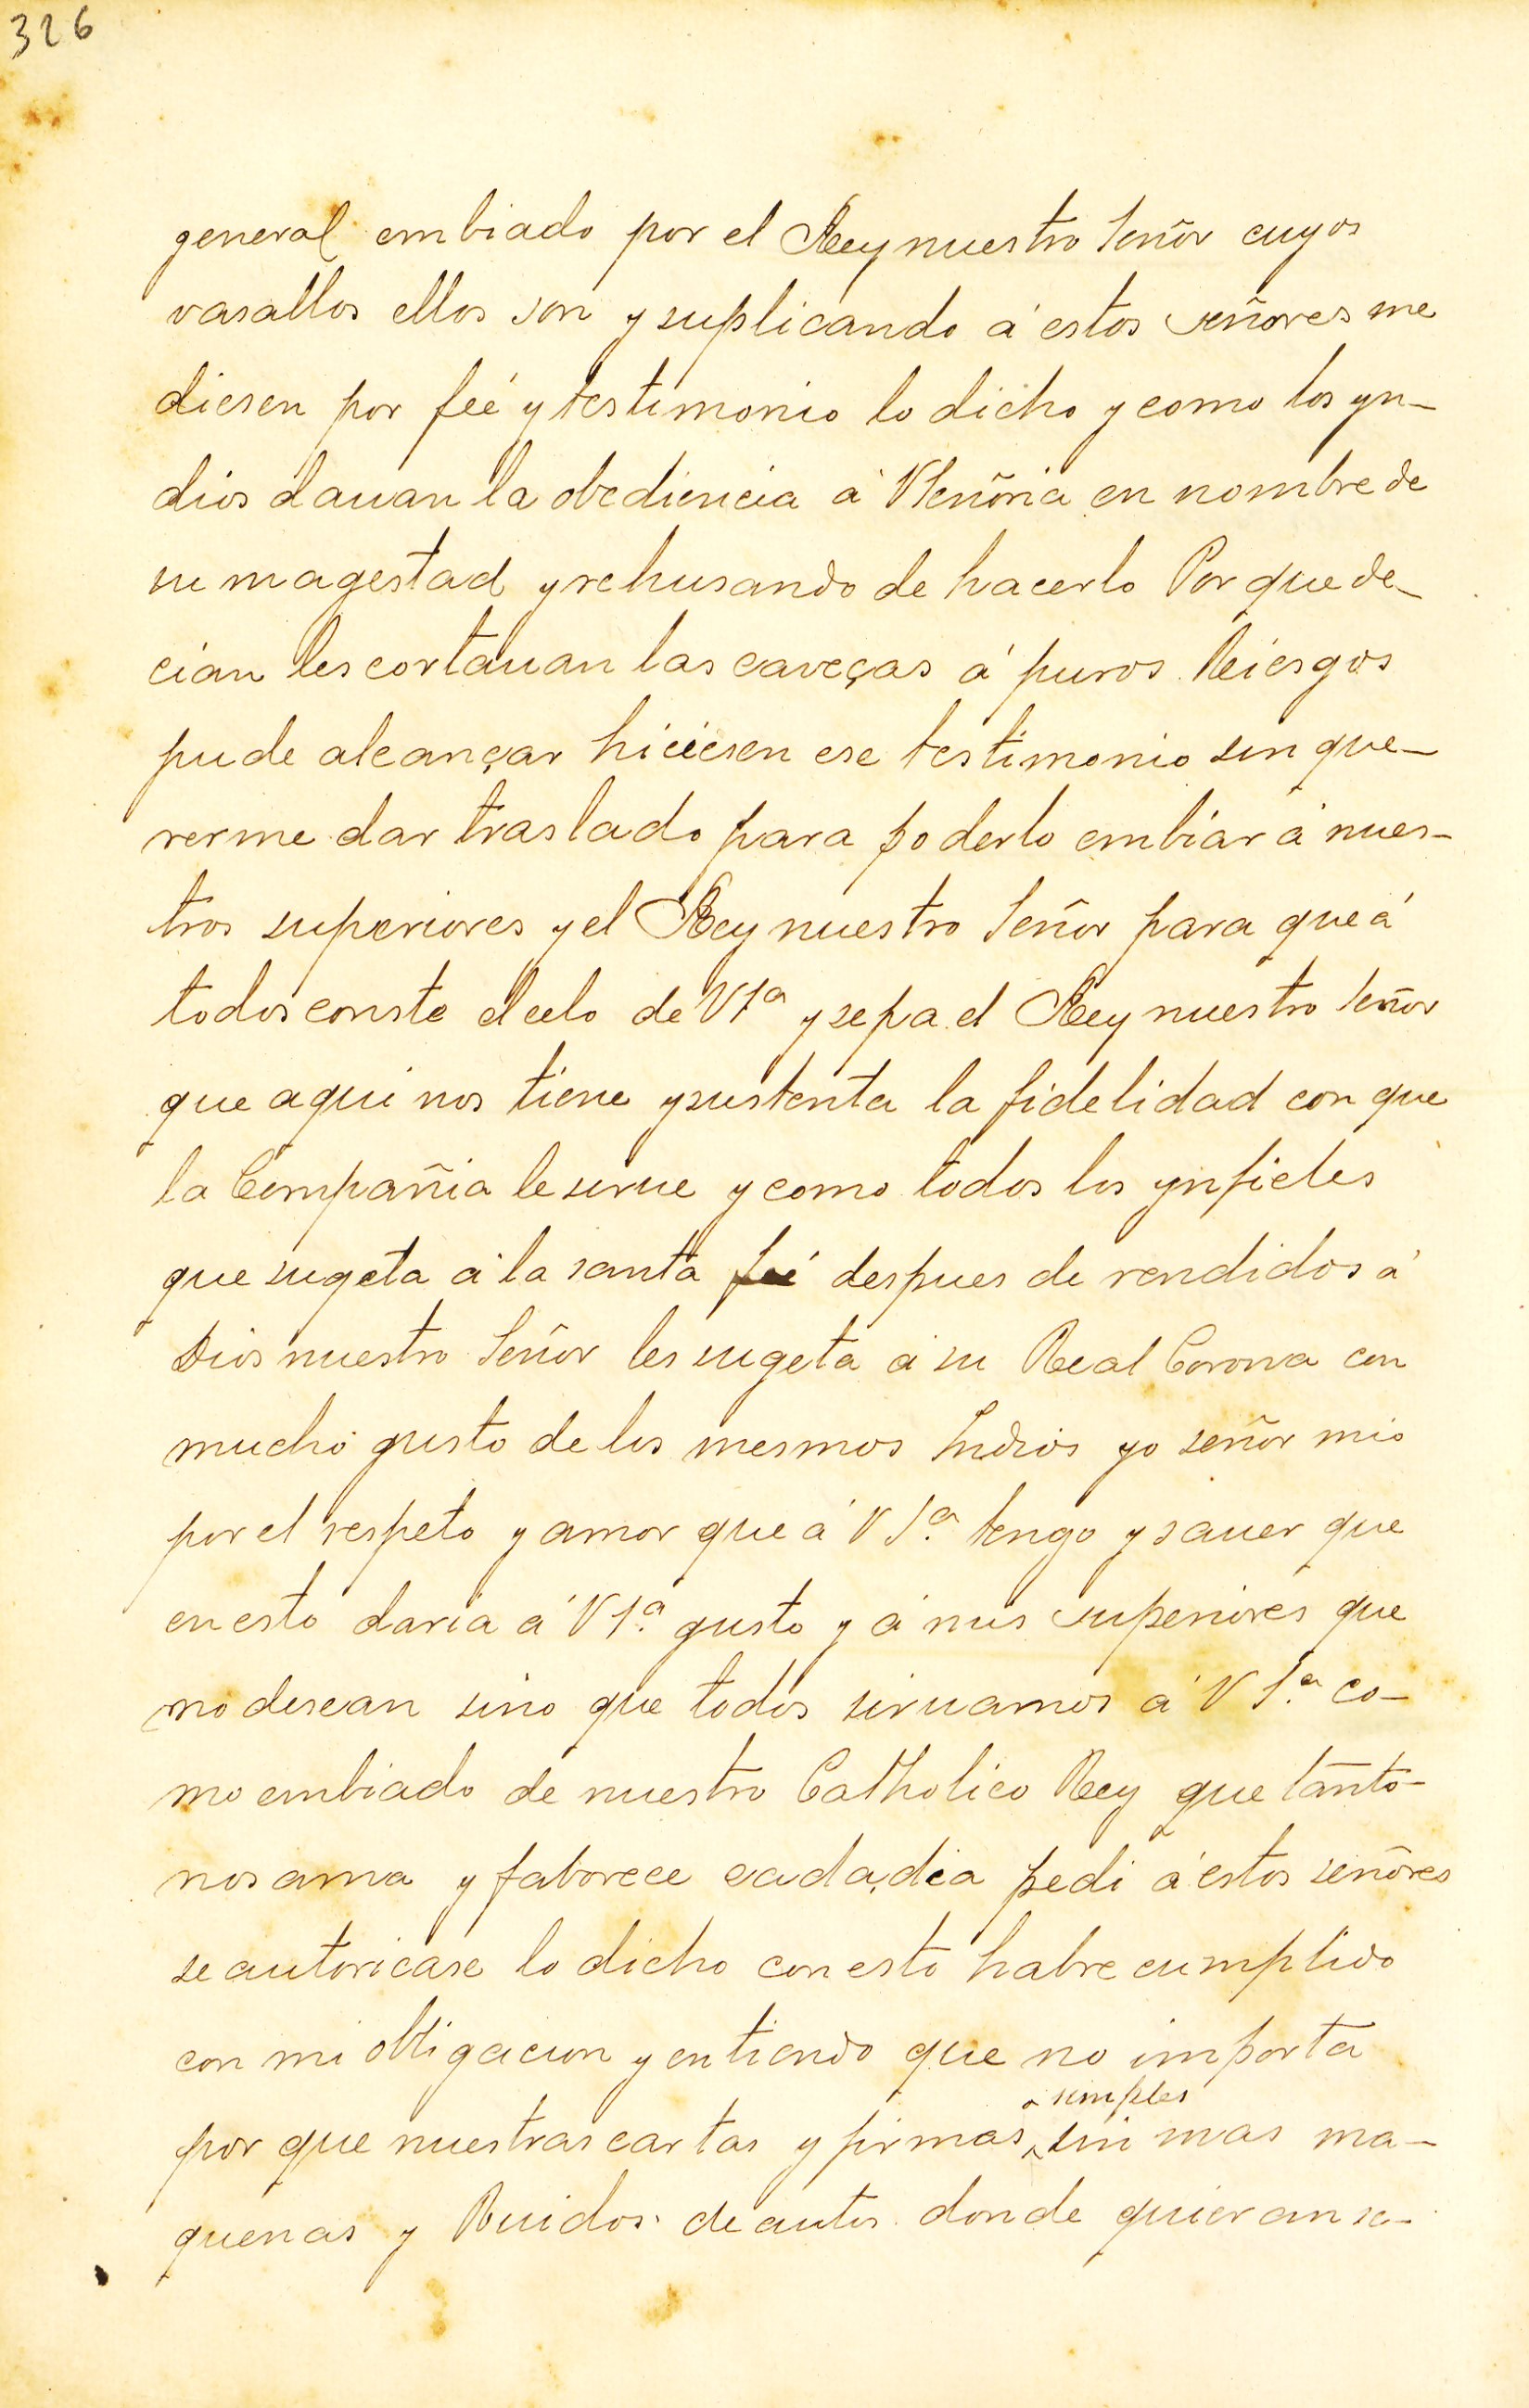 326
general embiado por el Rey nuestro Señor cuyos
vasallos ellos son y suplicando á estos señores me
diesen por feé y testimonio lo dicho y como los yn-
dios dauan la obediencia a VSeñoria en nombre de
su magestad y rehusando de hacerlo Por que de-
cian les cortauan las caveças á puros Rÿesgos
pude alcançar hiciesen ese testimonio sin que-
rerme dar traslado para poderlo embiar á nues-
tros superiores y el Rey nuestro Señor para que á
todos conste el celo de VSª y sepa el Rey nuestro Señor
que aqui nos tiene y sustenta la fidelidad con que
la Compañia le sirue y como todos los ynfieles
que sugeta á la santa feé despues de rendidos á
Dios nuestro Señor les sugeta á su Real Corona con
mucho gusto de los mesmos Indios yo señor mio
por el respeto y amor que á V S.ª tengo y sauer que
en esto daria á V S.ª gusto y á mis superiores que
no desean sino que todos siruamos á V S.ª co-
mo embiado de nuestro Catholico Rey que tanto-
nos ama y faborece cada dia pedi á estos señores
se autoricase lo dicho con esto habre cumplido
con mi obligacion y entiendo que no importa
simples
por que nuestras cartas y firmas sin mas ma-
quenas y Ruidos de autos donde quieran se-